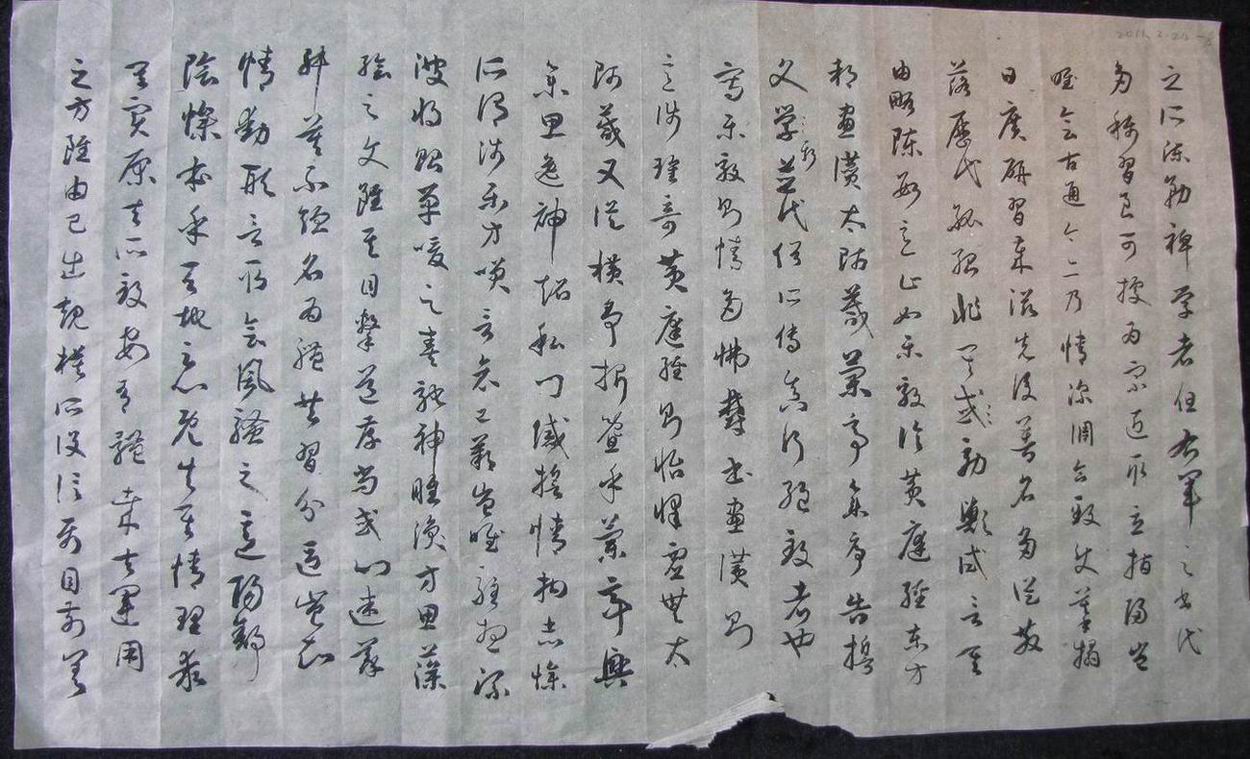 之所流勒裨學者但右軍之書代
多稱習良可據為宗近取立指歸豈
惟會古通今亦乃情深調合致使摹搨
日廣研習歲滋先後著名多從散
落歷代孤紹非其或効歟試言其
由略陳數意止如樂毅論黃庭經東方
朔畫讚太師箴蘭亭集序告誓
文學斯並代俗所傳真行絕致者也
寫樂毅則情多怫鬱書畫讚則
意涉瓌奇黃庭經則怡懌虛無太
師箴又從橫爭折暨乎蘭亭興
集思逸神超私門誡誓情拘志慘
所謂涉樂方笑言哀已歎豈惟駐想流
波將貽嘽喛之奏馳神睢渙方思藻
繪之文雖其目擊道存尚或心迷義
舛莫不強名為體共習分區豈知
情動形言取會風騷之意陽舒
陰慘本乎天地之心既失其情理乖
其實原夫所致安有體哉夫運用
之方雖由己出規模所設信屬目前差